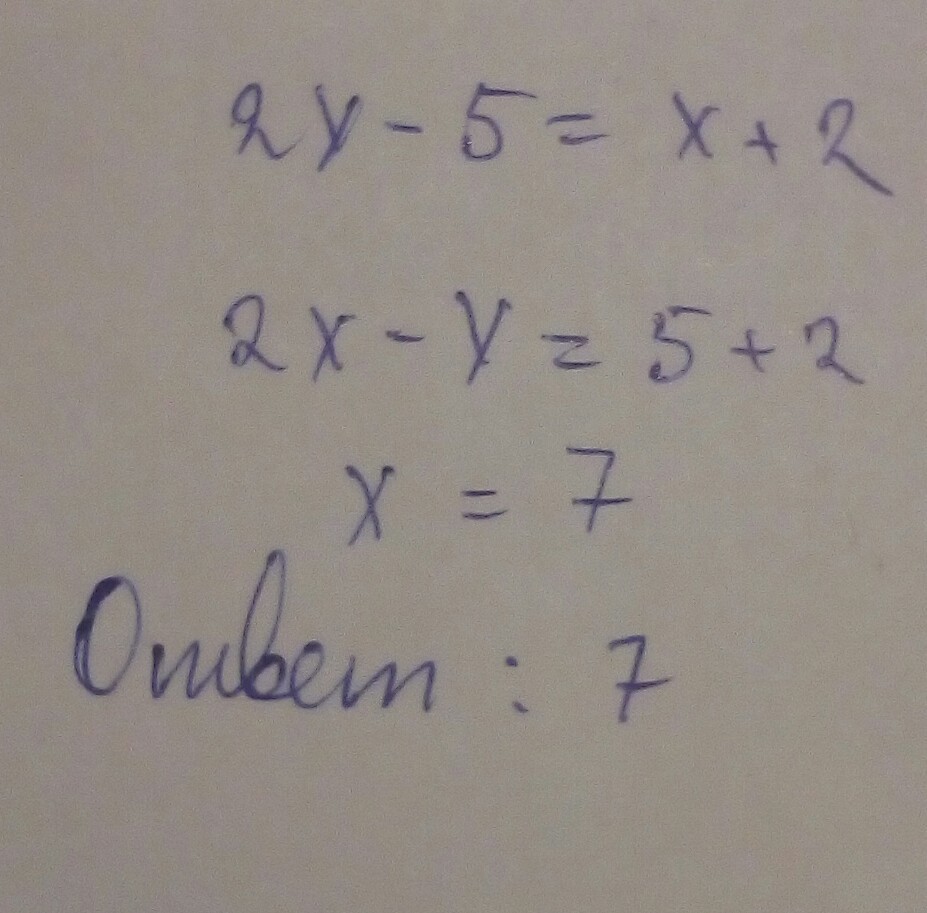 2y - 5 = x + 2
2x - y = 5 + 2
x = 7
Ответ : 7